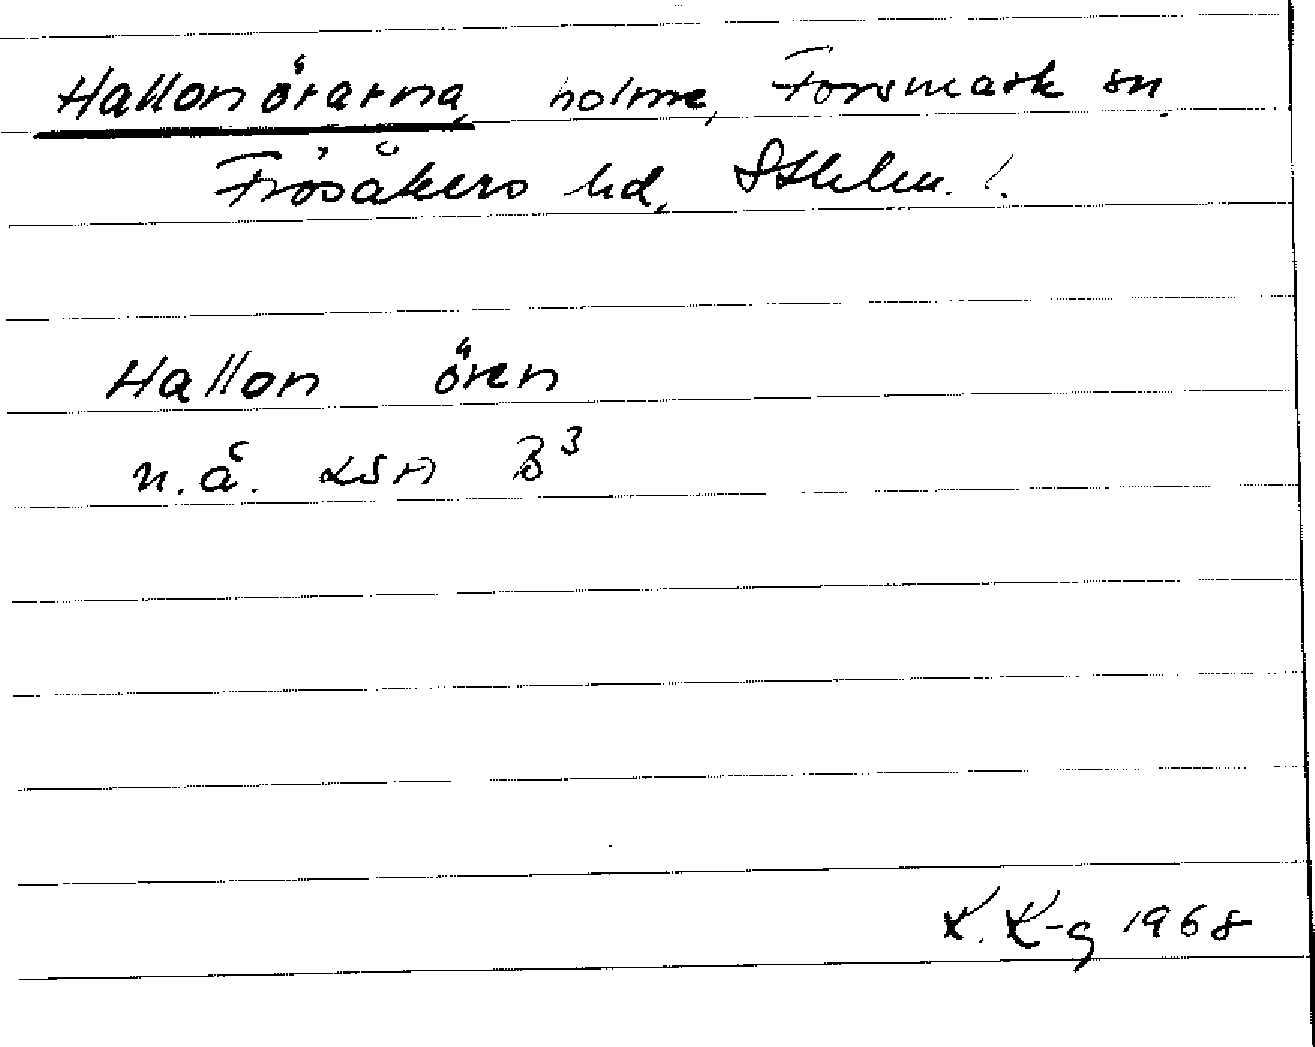 Hallonörarna, holme, Forsmark sn
Frösåkers hd, Sthlm. l.
Hallon ören
n.å. LSA B³
K. K-g 1968